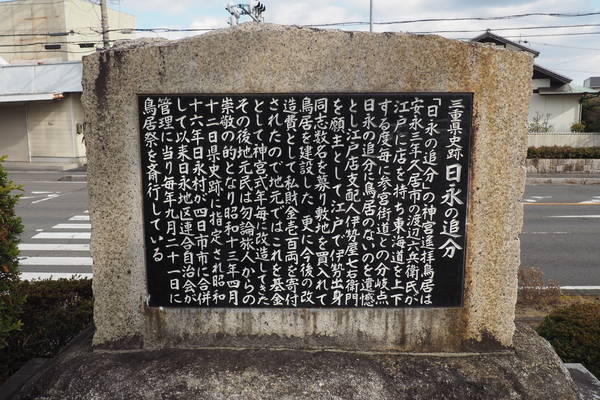 三重県史跡 日永の追分
「日永の追分」の神宮遥拝鳥居は
安永三年久居市の渡辺六兵衛氏が
江戸に店を持ち東海道を上下
する度毎に参宮街道との分岐点
日永の追分に鳥居のないのを遺憾
とし江戸店支配人伊勢屋七右衛門
を願主として江戸で伊勢出身
同志数名を募り敷地を買入れて
鳥居を建設した 更に今後の改
造費として私財金壱百両を寄付
されたので地元ではこれを基金
として神宮式年毎に改造してきた
その後地元民は勿論旅人からの
崇敬の的となり昭和十三年四月
十二日県史跡に指定され昭和
十六年日永村が四日市市に合併
して以来日永地区連合自治会が
管理に当り毎年九月二十一日に
鳥居祭を斎行している